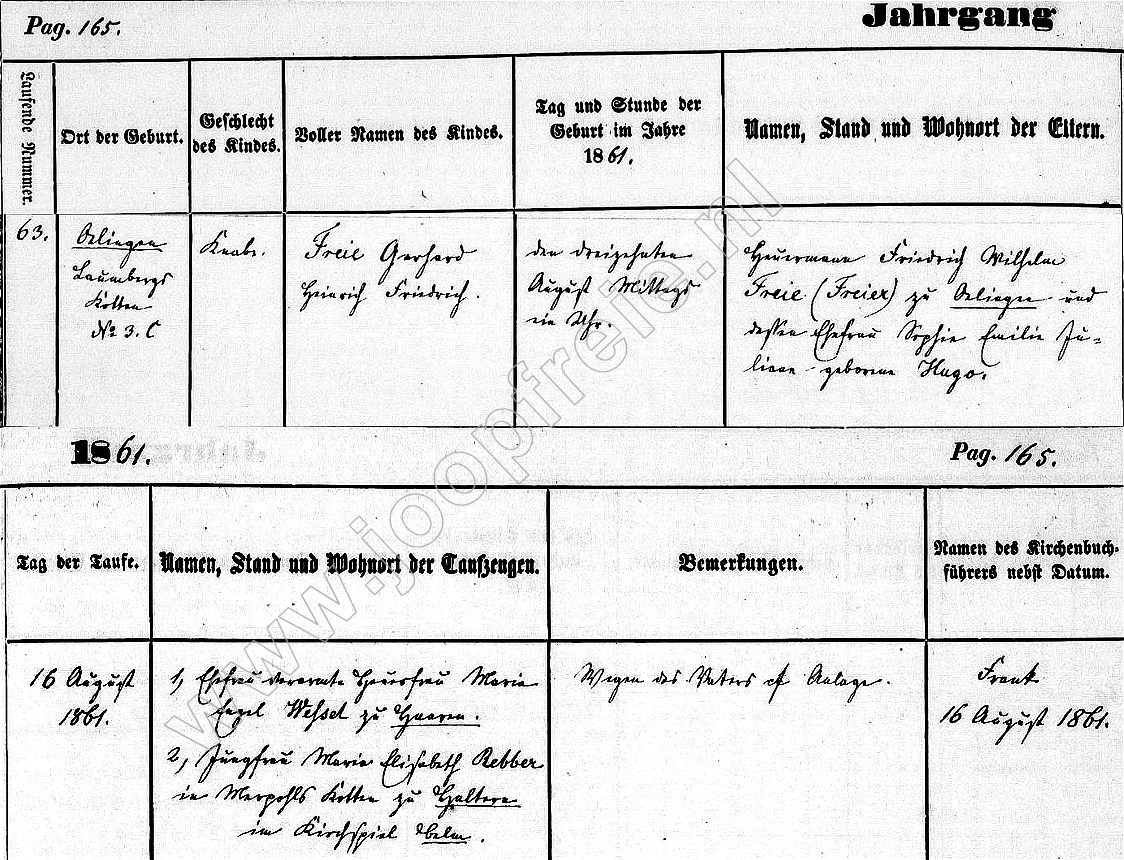 Pag. 165.
Jahrgang
Laufende Nummer.
Ort der Geburt.
Geschlecht
des Kindes.
Voller Namen des Kindes.
Tag und Stunde der
Geburt im Jahre
1861.
Namen, Stand und Wohnort der Eltern.
63.
Oelingen
Kotten
No 3. C
Knabe.
Freie Gerhard
Heinrich Friedrich.
den dreizehnten
August Mittags
ein Uhr.
Heuermann Friedrich Wilhelm
Freie (Freier) zu Oelingen und
dessen Ehefrau Sophie Emilie Ju-
liane geborene Hugo.
1861.
Pag. 165.
Tag der Taufe.
Namen, Stand und Wohnort der Taufzeugen.
Bemerkungen.
Namen des Kirchenbuch-
führers nebst Datum.
16 August
1861.
1, Ehefrau Marie
Engel Wessel zu Haaren.
2, Jungfrau Marie Elisabeth Rebber
in Kotten zu Haltern
im Kirchspiel Belm.
Wegen des Vaters cf Anlage.
Frank
16 August 1861.
www.joopfreie.nl